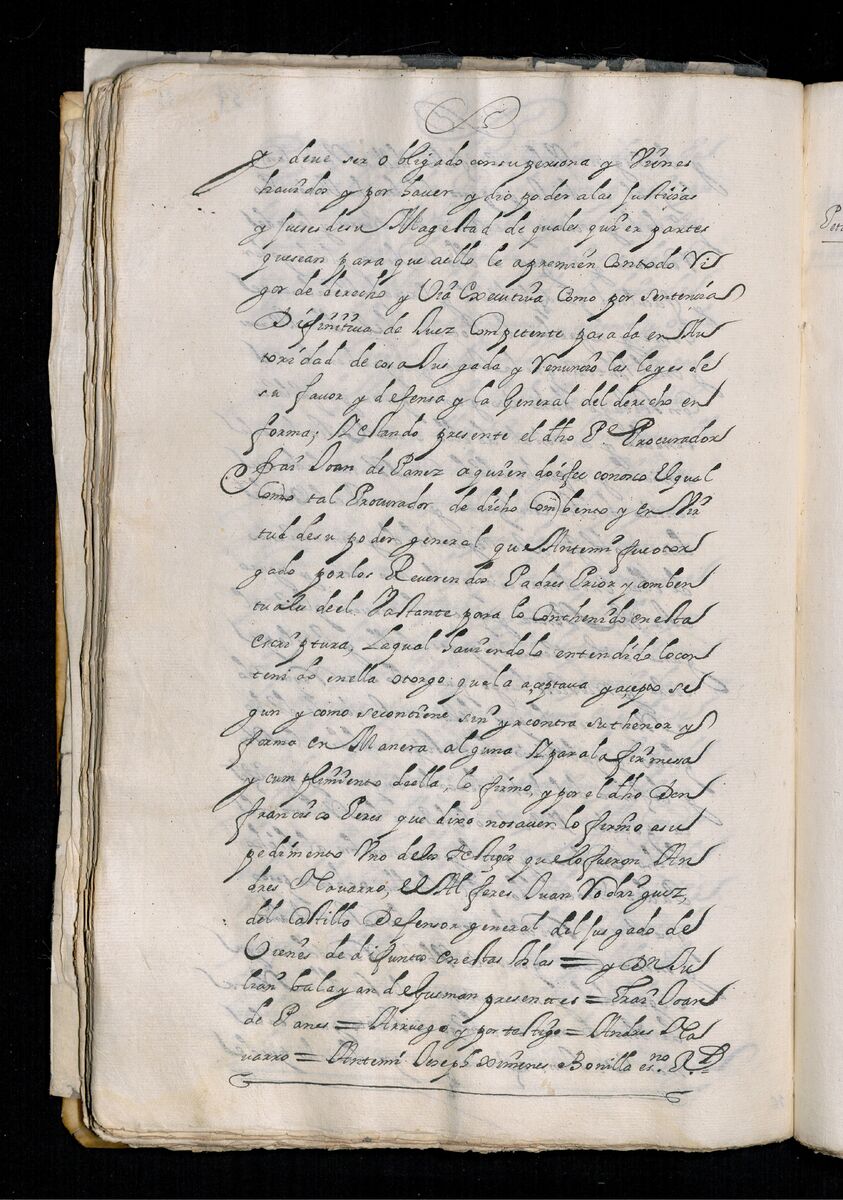 y deve ser obligado con su persona y Vienes
hauidos y por hauer y dio poder alas Justicias
y Jueses de su Magestad de quales quier partes
quesean para que aello le apremien Contodo Ri
gor de derecho y Via Executiva Como por Sentencia
Difinitiva de Juez Competente pasada en Au
toridad de cosa Jusgada y Renuncio las leyes de
su favor y defensa y la General del derecho en
forma; Y estando presente el dho Pe Procurador
frai Joan de Panez aquien doi fee conosco El qual
Como tal Procurador de dicho Combento y en Vir
tud desu poder general que Antemi fue otor
gado por los Reverendos Padres Prior y comben
tuales de el Vastante para lo Conthenido en esta
Escriptura, Laqual haviendolo entendido lo con
tenido enella otorgo que la aceptava y acepto se
gun y como se contiene sin yr contra su thenor y
forma en Manera alguna Y para la firmesa
y cumplimiento de ella, lo firmo, y por el dho Don
françisco Peres que dixo no saver lo firmo asu
pedimento Uno delos testigos que lo fueron An
dres Navarro, el Alferes Juan Rodriguez,
del Castillo Defensor general del Jusgado de
Vienes de difuntos en estas Yslas = y Dn Ju
lian balayan de Gusman presentes = Frai Joan
de Panes = Arruego y por testigo = Andres Na
varro = Antemi Joseph Ximenes Bonilla esno. Rl